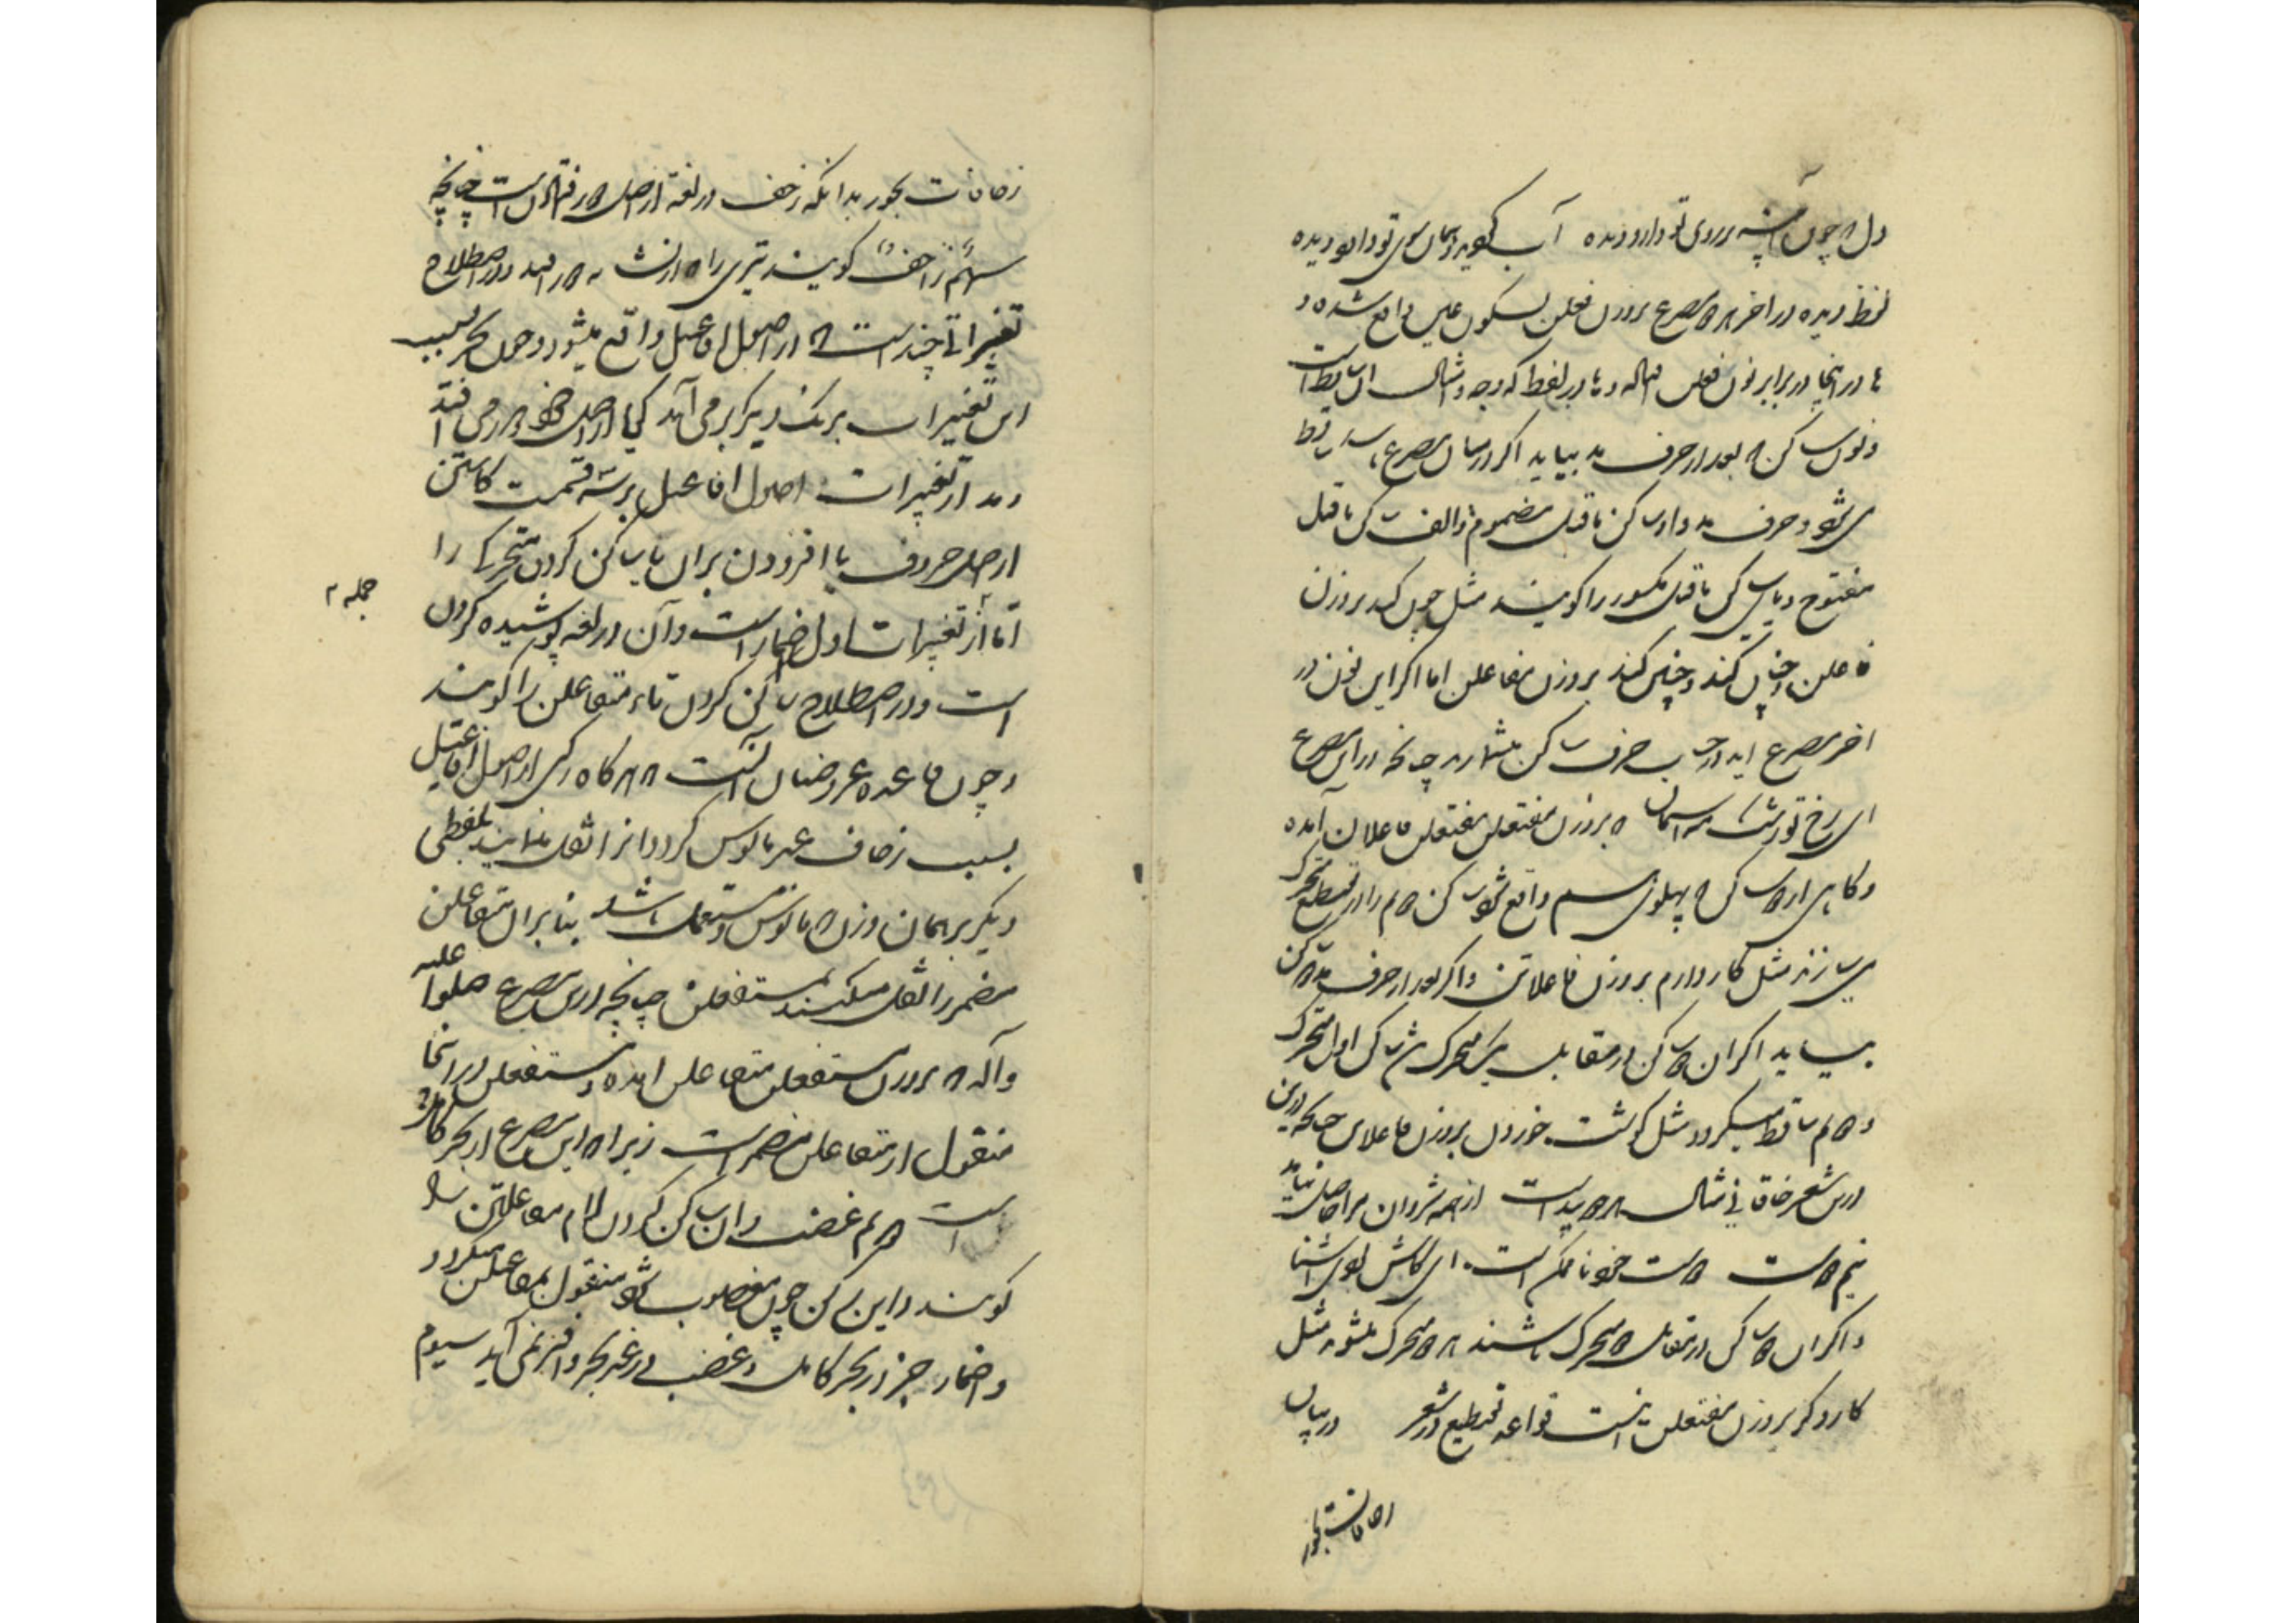 دل چون آینه بر روی تو دارد دیده آب گوید سوی تو دارد دیده
لفظ دیده در آخر هر دو مصرع بر وزن فعلن بسکون عین واقع شده و
ها در اینجا در برابر نون فعلن
و نون ساکن که بعد از حرف مد بیاید اگر در میان مصرع باشد ساقط
می شود و حرف مد واو ساکن ماقبل مضموم و الف ساکن ماقبل
مفتوح و یای ساکن ماقبل مکسور را گویند مثل چون کند بر وزن
فاعلن و چنان کند و چنین کند بر وزن مفاعلن اما اگر این نون در
آخر مصرع آید در حساب حرف ساکن میشمارند چنانچه در این مصرع
ای رخ تو رشک مه آسمان که بر وزن مفتعلن مفتعلن فاعلان آمده
و گاهی از دو ساکن که پهلوی هم واقع شود ساکن دوم را در تقطیع متحرک
می سازند مثل کار دارم بر وزن فاعلاتن و اگر بعد از حرف مد دو ساکن
بیاید اگر آن دو ساکن در مقابل یک متحرک باشد ساکن اول متحرک
و دوم ساقط میگردد مثل گوشت خوردن بر وزن فاعلاتن چنانکه درین
درین شعر خاقانی مثال هر دو پیداست از همه شروان مرا حاصل نیاید
نیم دوست دوست خود ناممکن است ای کاش بودی آشنا
و اگر آن دو ساکن در مقابل دو متحرک باشند هر دو متحرک میشوند مثل
کارد گر بر وزن مفتعلن اینست قواعد تقطیع در شعر در بیان
زحافات بحور
زحافات بحور بدانکه زحف در لغة از اصل دور افتادن است چنانچه
سهم زاحف گویند تیری را که از نشانه دور افتد و در اصطلاح
تغییراتی چند است که در اصول افاعیل واقع میشود و چون بحر بسبب
این تغییرات برنگ دیگر بر می آید گویا از اصل خود دور می افتد
و مدار تغییرات اصول افاعیل بر سه قسمست کاستن
از اصل حروف یا افزودن بران یا ساکن کردن متحرکی را
جمله
اما از تغییرات اول اضمار است و آن در لغة پوشیده کردن
است و در اصطلاح ساکن کردن تاء متفاعلن را گویند
و چون قاعده عروضیان آنست که هر گاه رکنی از اصول افاعیل
بسبب زحاف غیر مانوس گردد آنرا نقل نمایند بلفظی
دیگر بر همان وزن که مانوس و مستعمل باشد بنابران متفاعلن
مضمر را نقل میکنند بمستفعلن چنانچه درین مصرع صلوا علیه
و آله که بر وزن مستفعلن متفاعلن آمده و مستفعلن در اینجا
منقول از متفاعلن مضمر است زیرا که این مصرع از بحر کامل
است دوم عضب و آن ساکن کردن لام مفاعلتن را
گویند و این رکن چون معصوب شود منقول بمفاعیلن میگردد
و اضمار جز در بحر کامل و عضب در غیر بحر وافر نمی آید سیوم